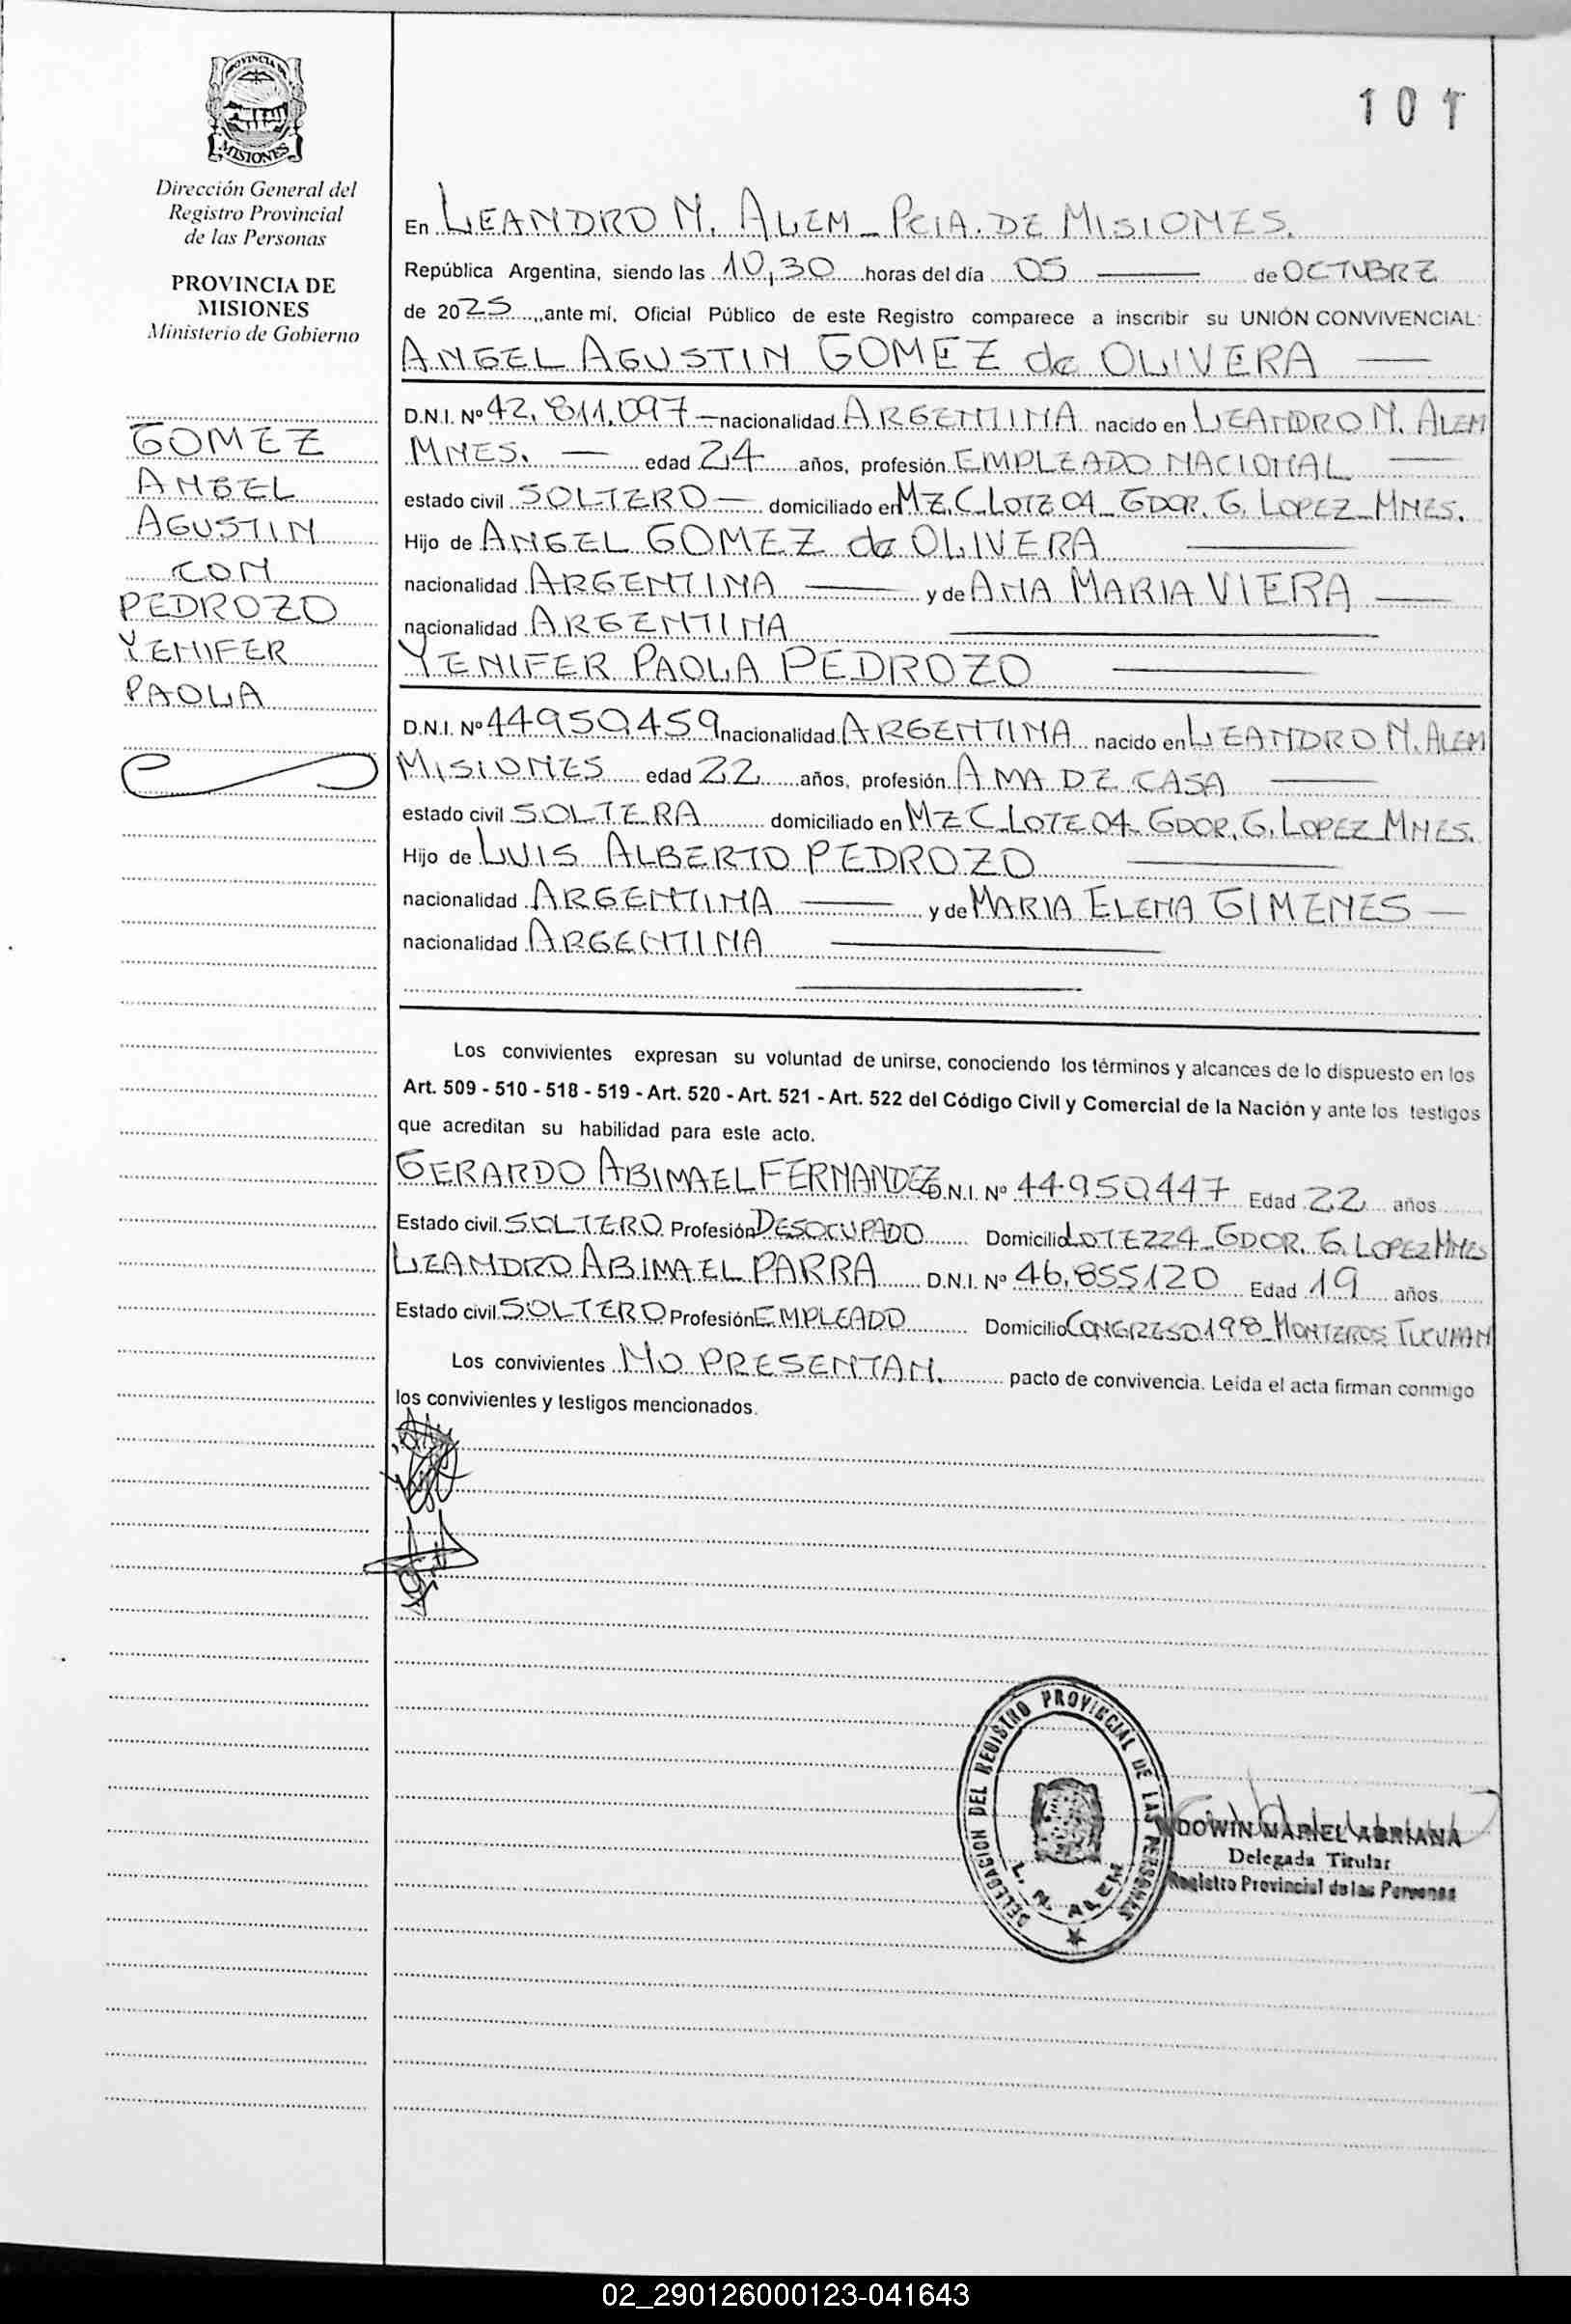 PROVINCIA DE
MISIONES
Dirección General del
Registro Provincial
de las Personas
PROVINCIA DE
MISIONES
Ministerio de Gobierno
GOMEZ
ANGEL
AGUSTIN
CON
PEDROZO
YENIFER
PAOLA
101
En LEANDRO N. ALEM - PCIA. DE MISIONES.
República Argentina, siendo las 10,30 horas del día 05 de OCTUBRE
de 2025, ante mí, Oficial Público de este Registro comparece a inscribir su UNIÓN CONVIVENCIAL:
ANGEL AGUSTIN GOMEZ de OLIVERA
D.N.I. Nº 42.811.097 nacionalidad ARGENTINA nacido en LEANDRO N. ALEM
MNES. edad 24 años, profesión EMPLEADO NACIONAL
estado civil SOLTERO domiciliado en MZ. C-LOTE 04-GDOR. G. LOPEZ-MNES.
Hijo de ANGEL GOMEZ de OLIVERA
nacionalidad ARGENTINA y de ANA MARIA VIERA
nacionalidad ARGENTINA
YENIFER PAOLA PEDROZO
D.N.I. Nº 44950.459 nacionalidad ARGENTINA nacido en LEANDRO N. ALEM
MISIONES edad 22 años, profesión AMA DE CASA
estado civil SOLTERA domiciliado en MZ C-LOTE 04-GDOR. G. LOPEZ MNES.
Hijo de LUIS ALBERTO PEDROZO
nacionalidad ARGENTINA y de MARIA ELENA GIMENES
nacionalidad ARGENTINA
Los convivientes expresan su voluntad de unirse, conociendo los términos y alcances de lo dispuesto en los
Art. 509 - 510 - 518 - 519 - Art. 520 - Art. 521 - Art. 522 del Código Civil y Comercial de la Nación y ante los testigos
que acreditan su habilidad para este acto.
GERARDO ABIMAEL FERNANDEZ D.N.I. Nº 44.950.447 Edad 22 años
Estado civil SOLTERO Profesión DESOCUPADO Domicilio LOTE 224-GDOR. G. LOPEZ MNES
LEANDRO ABIMAEL PARRA D.N.I. Nº 46.855120 Edad 19 años
Estado civil SOLTERO Profesión EMPLEADO Domicilio CONGRESO 198-MONTEROS TUCUMAN
Los convivientes NO PRESENTAN. pacto de convivencia. Leída el acta firman conmigo
los convivientes y testigos mencionados.
DELEGACION DEL REGISTRO PROVINCIAL DE LAS PERSONAS
L. N. ALEM
DOWIN MARIEL ADRIANA
Delegada Titular
Registro Provincial de las Personas
02_290126000123-041643